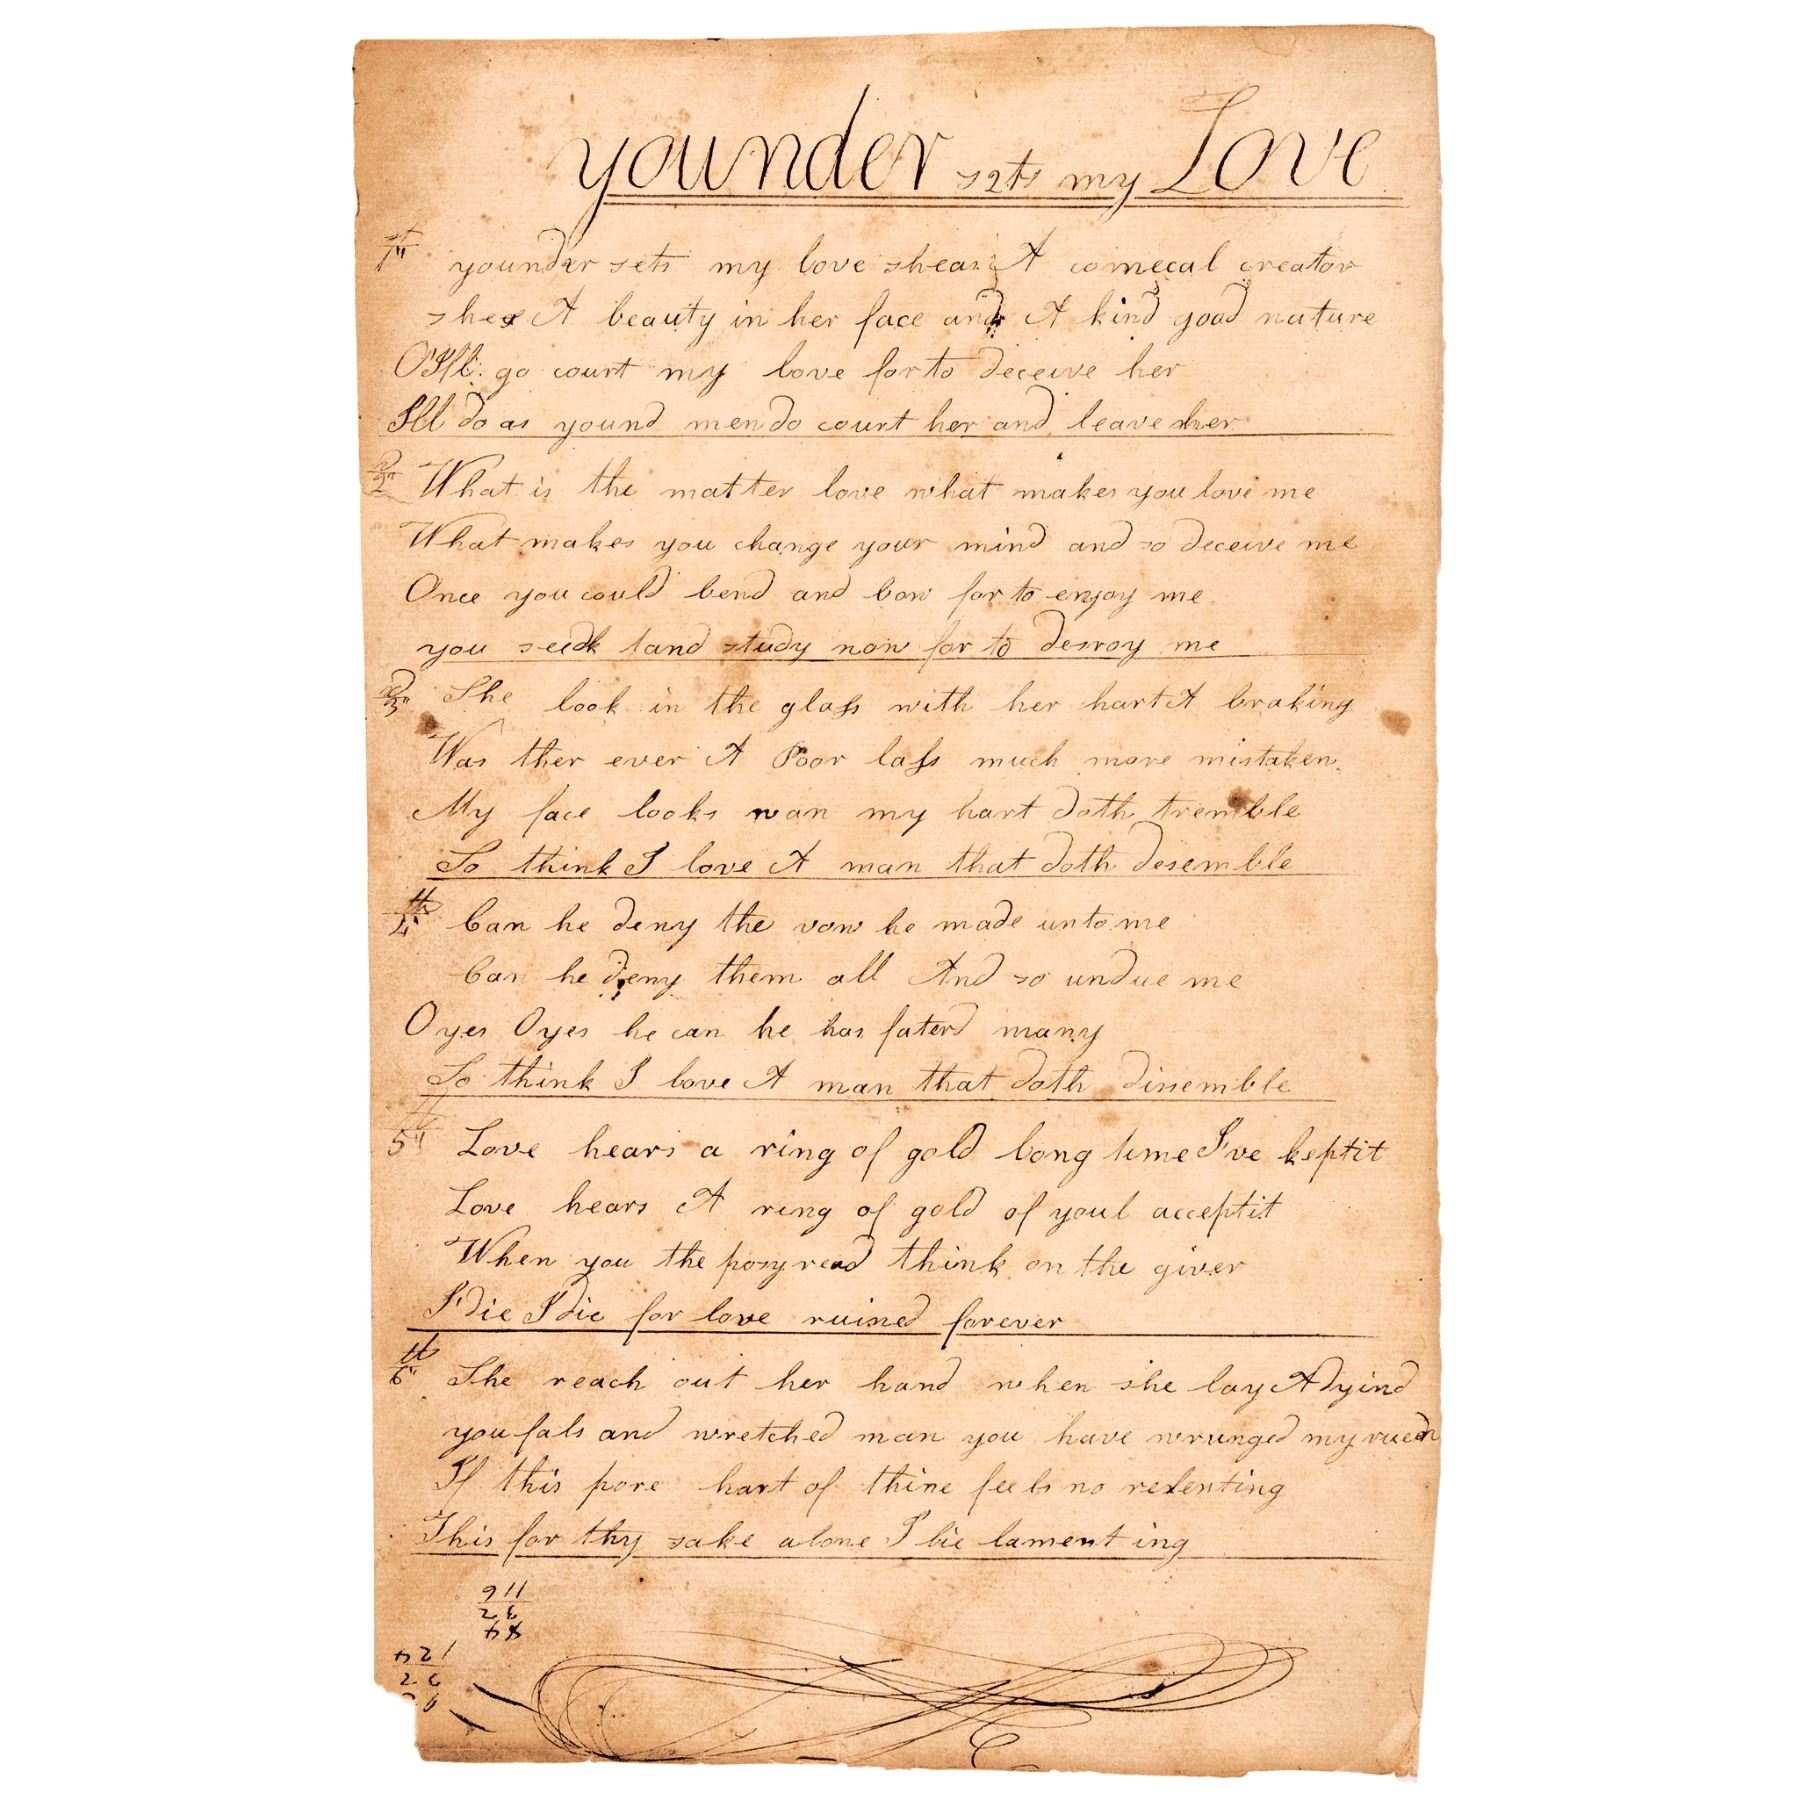 younder sets my Love
1st younder sets my love sheas A comecal creator
shes A beauty in her face and A kind good nature
O I'll go court my love for to deceive her
I'll do as yound men do court her and leave her
2d What is the matter love what makes you love me
What makes you change your mind and so deceive me
Once you could bend and bow for to enjoy me
you seek and study now for to desroy me
3d She look in the glass with her hart A braking
Was ther ever A Poor lass much more mistaken
My face looks wan my hart doth tremble
To think I love A man that doth desemble
4th Can he deny the vow he made unto me
Can he deny them all And so undue me
O yes O yes he can he has faterd many
To think I love A man that doth dissemble
5th Love hears a ring of gold long time I've keptit
Love hears A ring of gold of youl acceptit
When you the posy read think on the giver
I die I die for love ruined forever
6th She reach out her hand when she lay A dyind
you fals and wretched man you have wrunged my
If this pore hart of thine feels no relenting
This for thy sake alone I lie lament ing